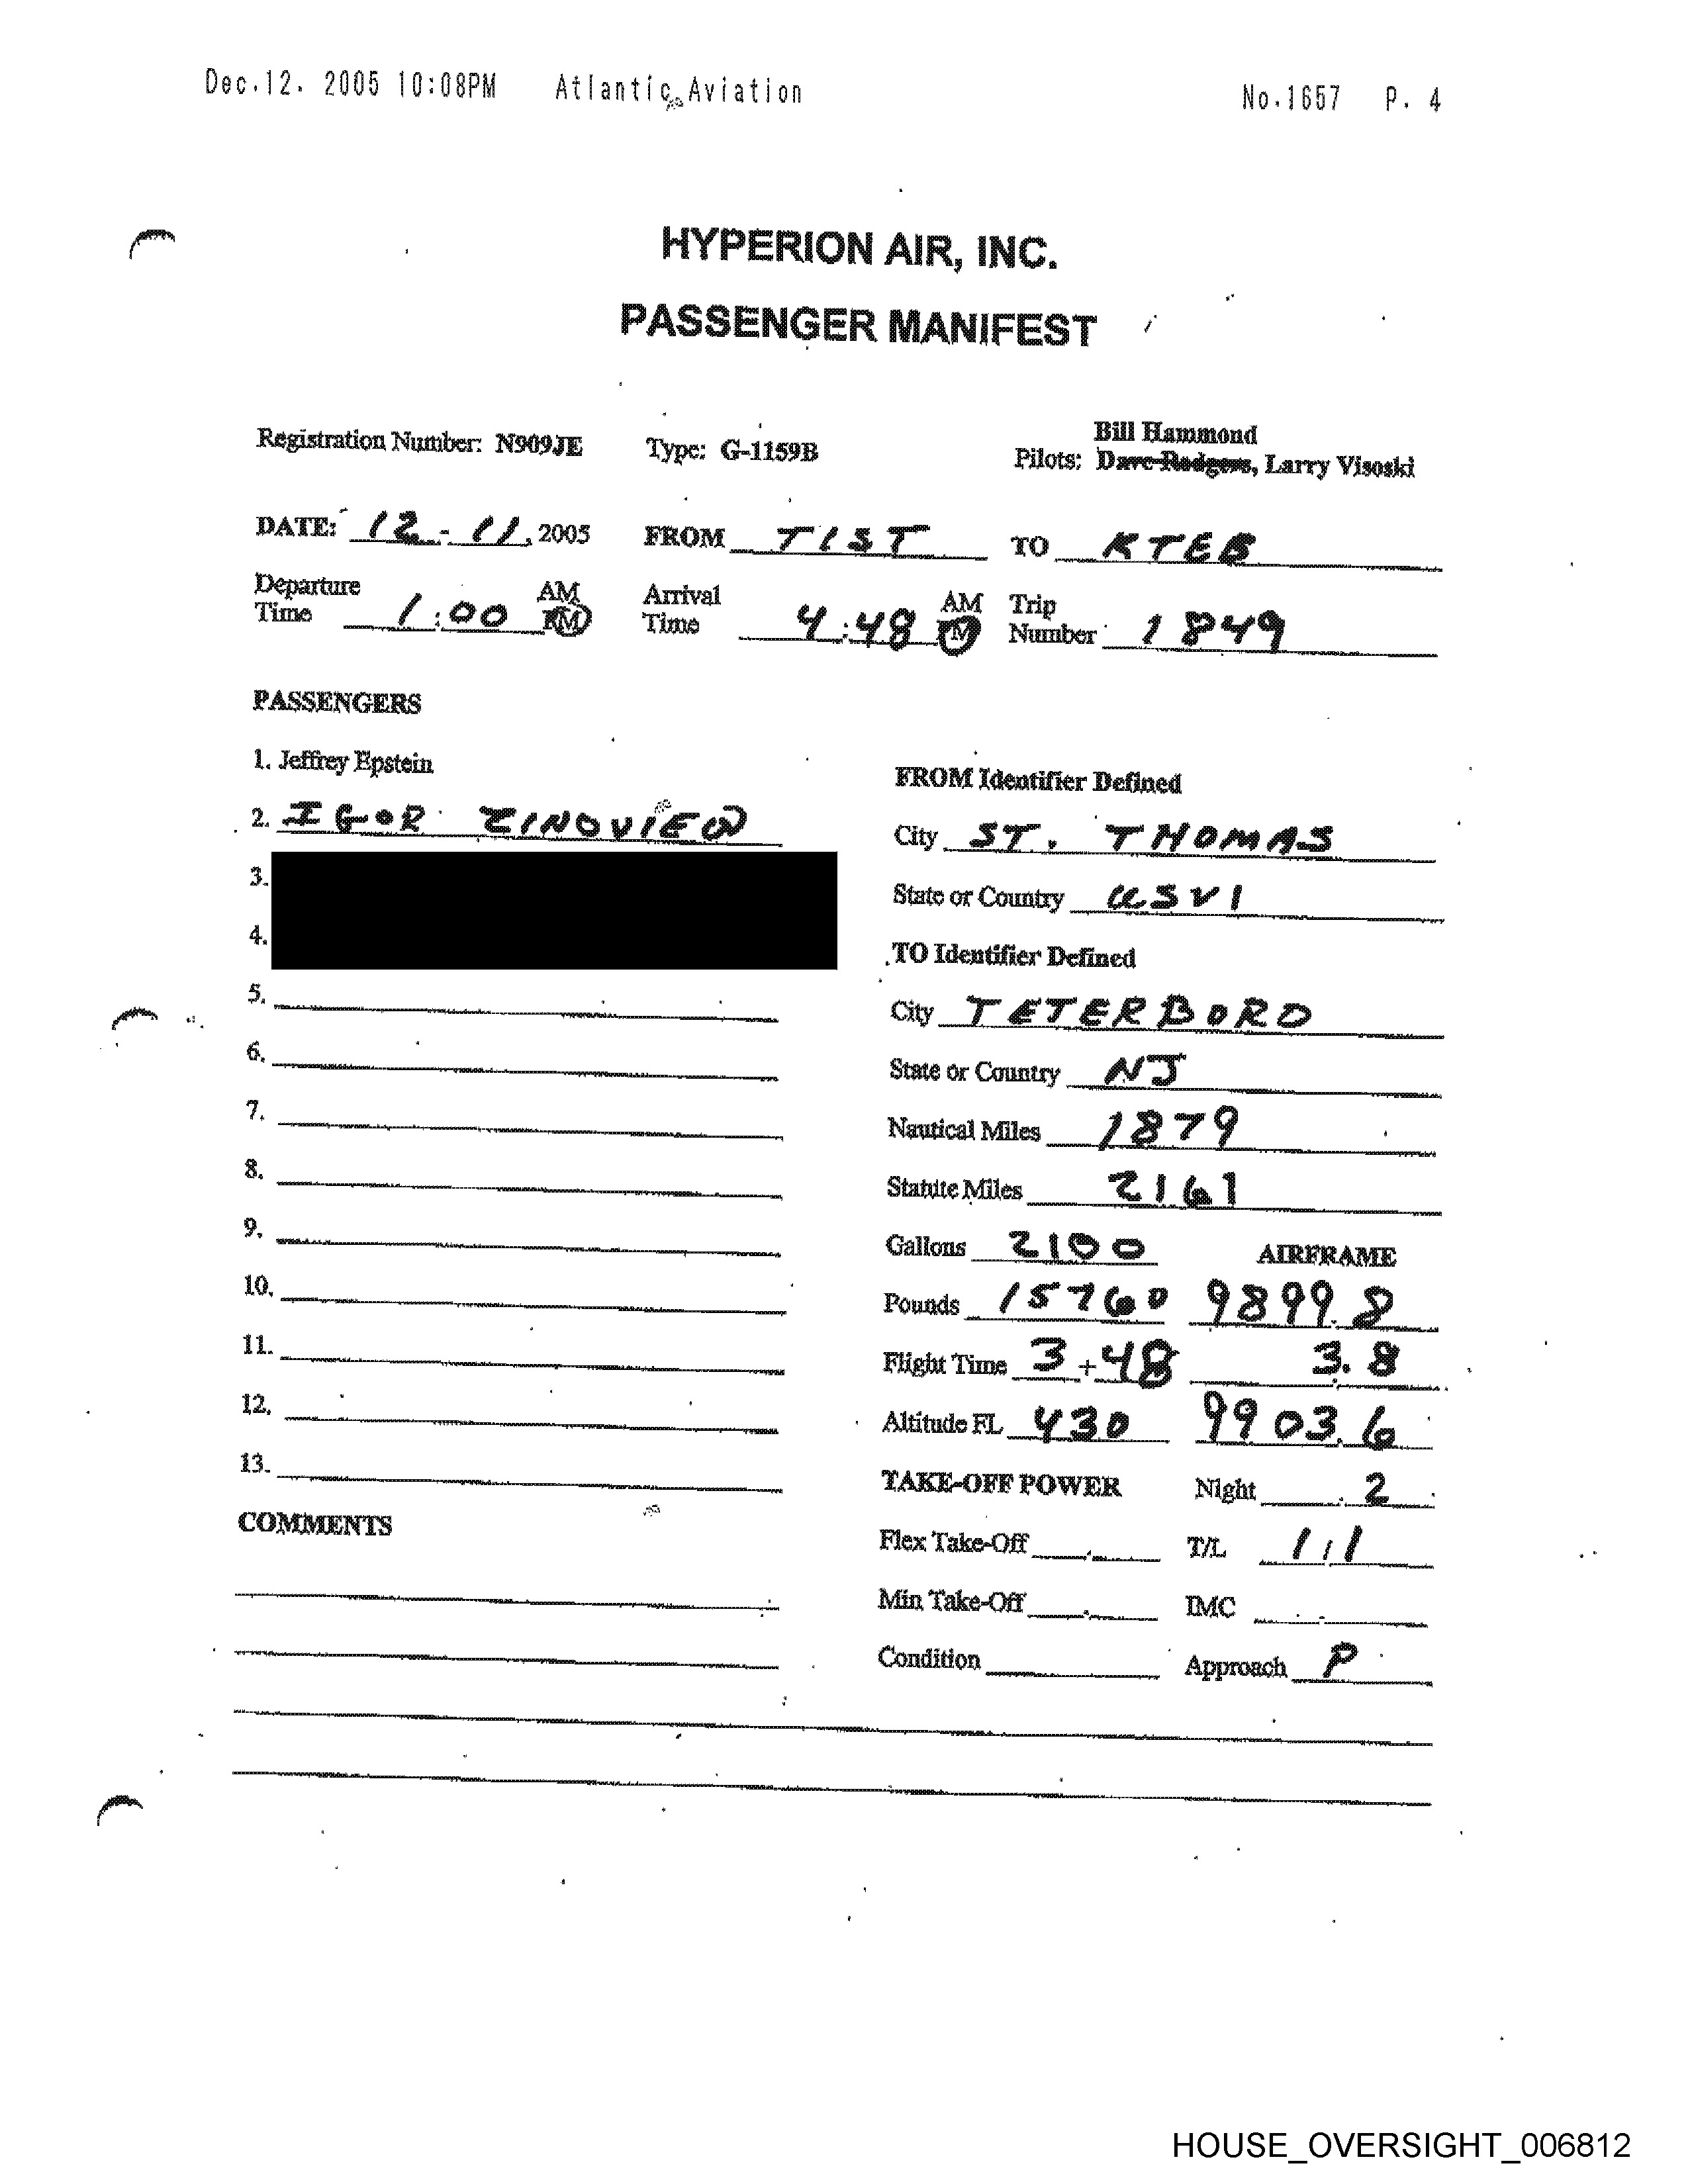 Dec.12. 2005 10:08PM Atlantic Aviation No.1657 P. 4
HYPERION AIR, INC.
PASSENGER MANIFEST
Bill Hammond
Registration Number: N909JE Type: G-1159B Pilots: Dave Rodgers, Larry Visoski
DATE: 12-11, 2005 FROM TIST TO KTEB
Departure Time 1:00 AM PM Arrival Time 4:48 AM PM Trip Number 1849
PASSENGERS
1. Jeffrey Epstein
2. IGOR ZINOVIEW
3.
4.
5.
6.
7.
8.
9.
10.
11.
12.
13.
COMMENTS
FROM Identifier Defined
City ST. THOMAS
State or Country USVI
TO Identifier Defined
City TETERBORO
State or Country NJ
Nautical Miles 1879
Statute Miles 2161
Gallons 2100 AIRFRAME
Pounds 15760 9899.8
Flight Time 3+48 3.8
Altitude FL 430 9903.6
TAKE-OFF POWER Night .2
Flex Take-Off T/L 1/1
Min Take-Off IMC
Condition Approach P
HOUSE_OVERSIGHT_006812